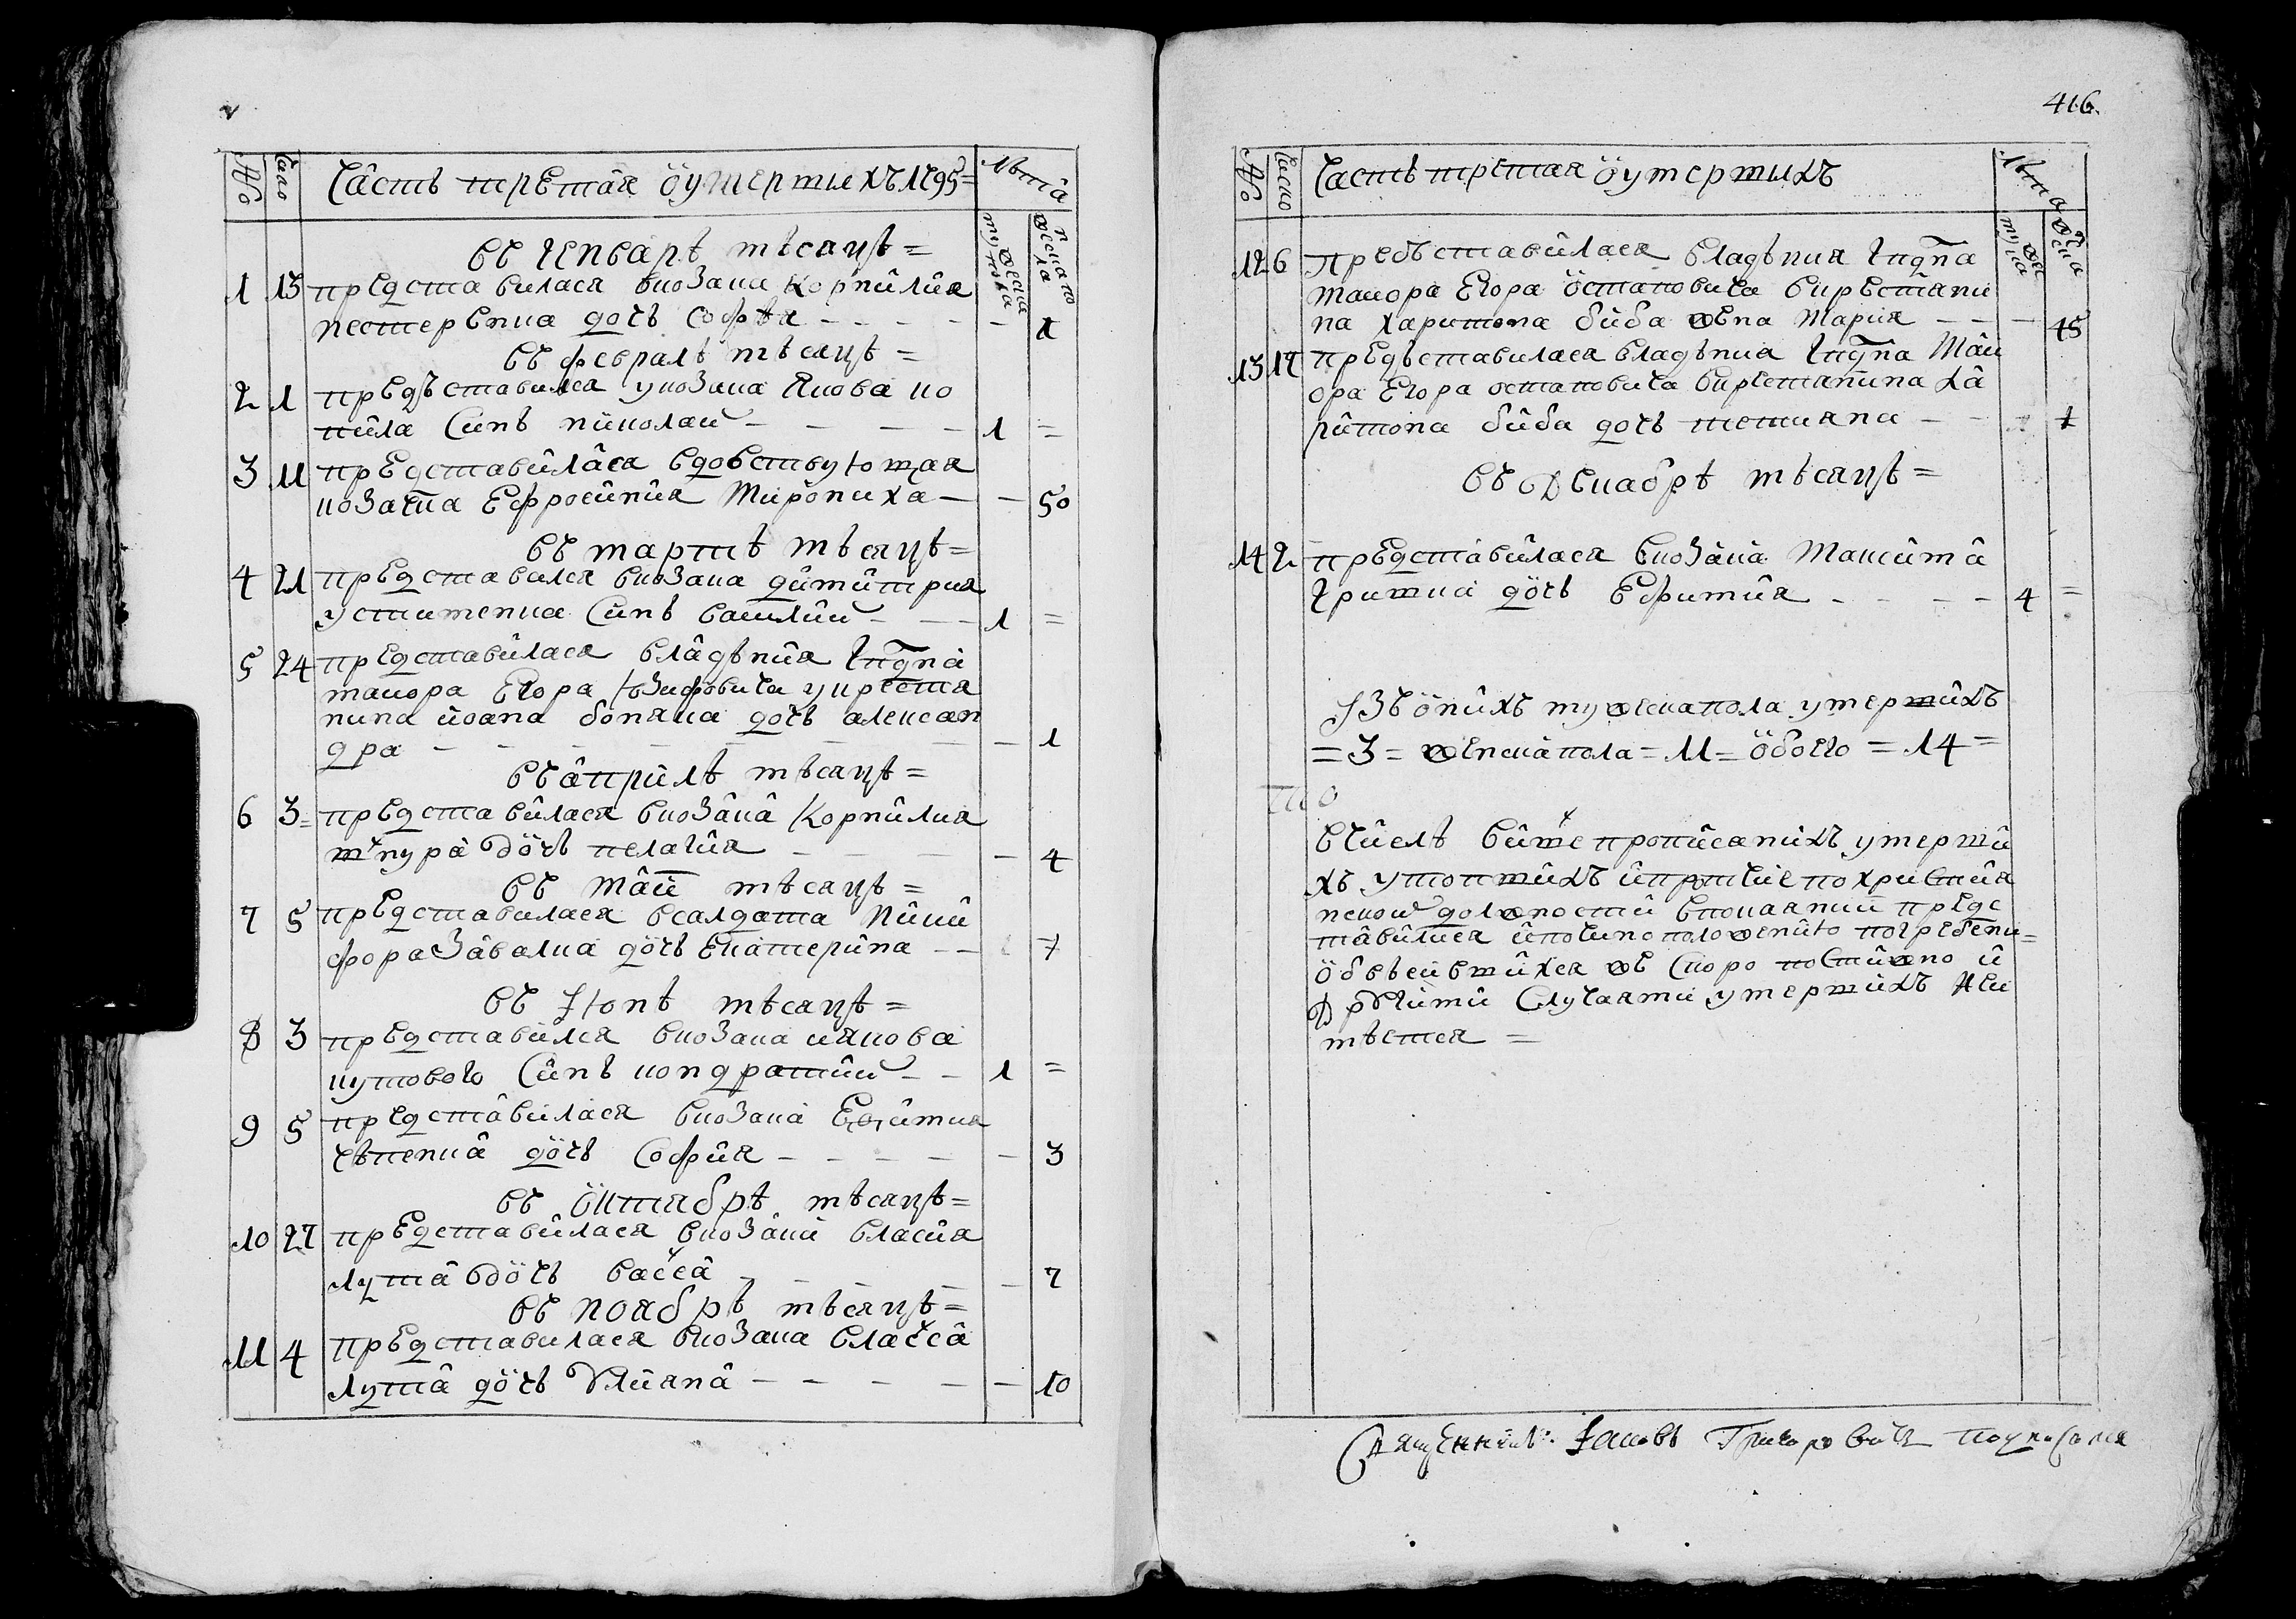 416.
№ Число Часть третая ŏ умершихъ 1795= Лѣта
мужеска пола женска пола
въ генварѣ мѣсяцѣ =
1 13 представилася вкозака Корнилия
нестервика дочь София - - - - 1
въ февралѣ мѣсяцѣ =
2 1 предъставился укозака Якова ко
пила синъ николай - - - - 1 =
3 11 представилася вдовствующая
козачка Ефросиния Мирониха - - 50
въ мартѣ мѣсяцѣ =
4 21 представился вкозака димитрия
устименка синъ василий - - - 1 =
5 24 представилася владѣния гпдна
маиора Егора Iозифовича укрестя
нина иоана боняка дочь алексан
дра - - - - - - 1
въ априлѣ мѣсяцѣ =
6 3= представилася вкозака Корнилия
дочь пелагия - - - - - 4
въ маи мѣсяцѣ =
7 5 представилася всалдата Ники
фора Завалка дочь Екатерина - - 7
въ Iюнѣ мѣсяцѣ =
8 3 представился вкозака иякова
кутового синъ кондратий - - 1 =
9 5 представилася вкозака Ефимия
чѣпенка дочь София - - - - - 3
въ ŏктябрѣ мѣсяцѣ =
10 27 представилася вкозака власия
лута дочь васса - - - - 7
въ ноябрѣ мѣсяцѣ =
11 4 представилася вкозака
лута дочь улияна - - - - - 10
№ Число Часть третая ŏ умершихъ Лѣта
12 6 предъставилася владѣния гпдна
маиора Егора ŏстановича вкрестяни
на харитона биба жена Мария - - - 45
13 17 предъставилася владѣния гпдна маи
ора Егора остановича вкрестянина ха
ритона биба дочь тетияна - - 7
въ декабрѣ мѣсяцѣ =
14 2 представилася вкозака Максима
гришка дочь Ефимия - - - - 4 =
Iзъ ŏнихъ мужескапола умершихъ
= 3 = женскапола = 11 = ŏбоего = 14 =
вчислѣ вишепрописанихъ умерши
хъ утопшихъ ипротчие похристия
нской должности впокаянии предс
тавилися ипочиноположению погребени=
ŏбьвсившихся же скоро постижно и
другими случаями умершихъ неи
мѣется =
Священникъ Iаковъ Григоровичъ подписался